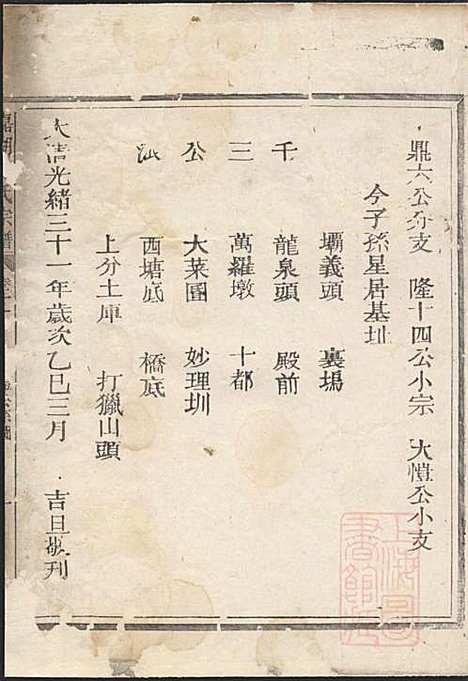 鼎六公分支 隆十四公小宗 大愷公小支
今子孫星居基址
壩義頭 裏塢
壬 龍泉頭 殿前
三 萬羅墩 十都
公 大菜園 妙理圳
派 西塘底 橋底
上分土庫 打獵山頭
大清光緒三十一年歲次乙巳三月 吉旦敬刊
氏宗譜